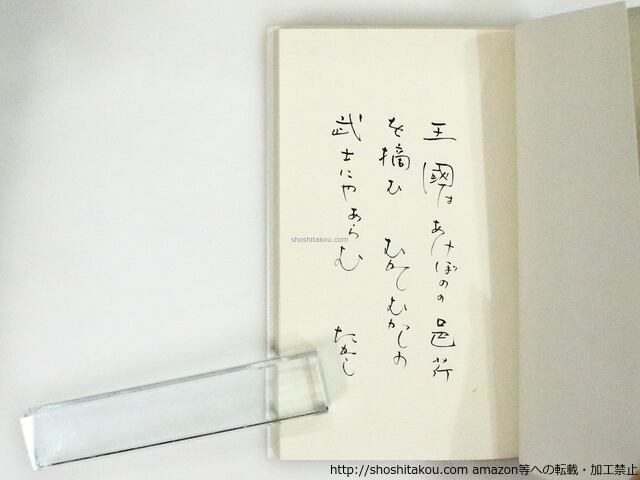 王國はあけぼのの邑芹
を摘む むかしむかしの
武士にやあらむ たかし
shoshitakou.com
http://shoshitakou.com amazon等への転載・加工禁止